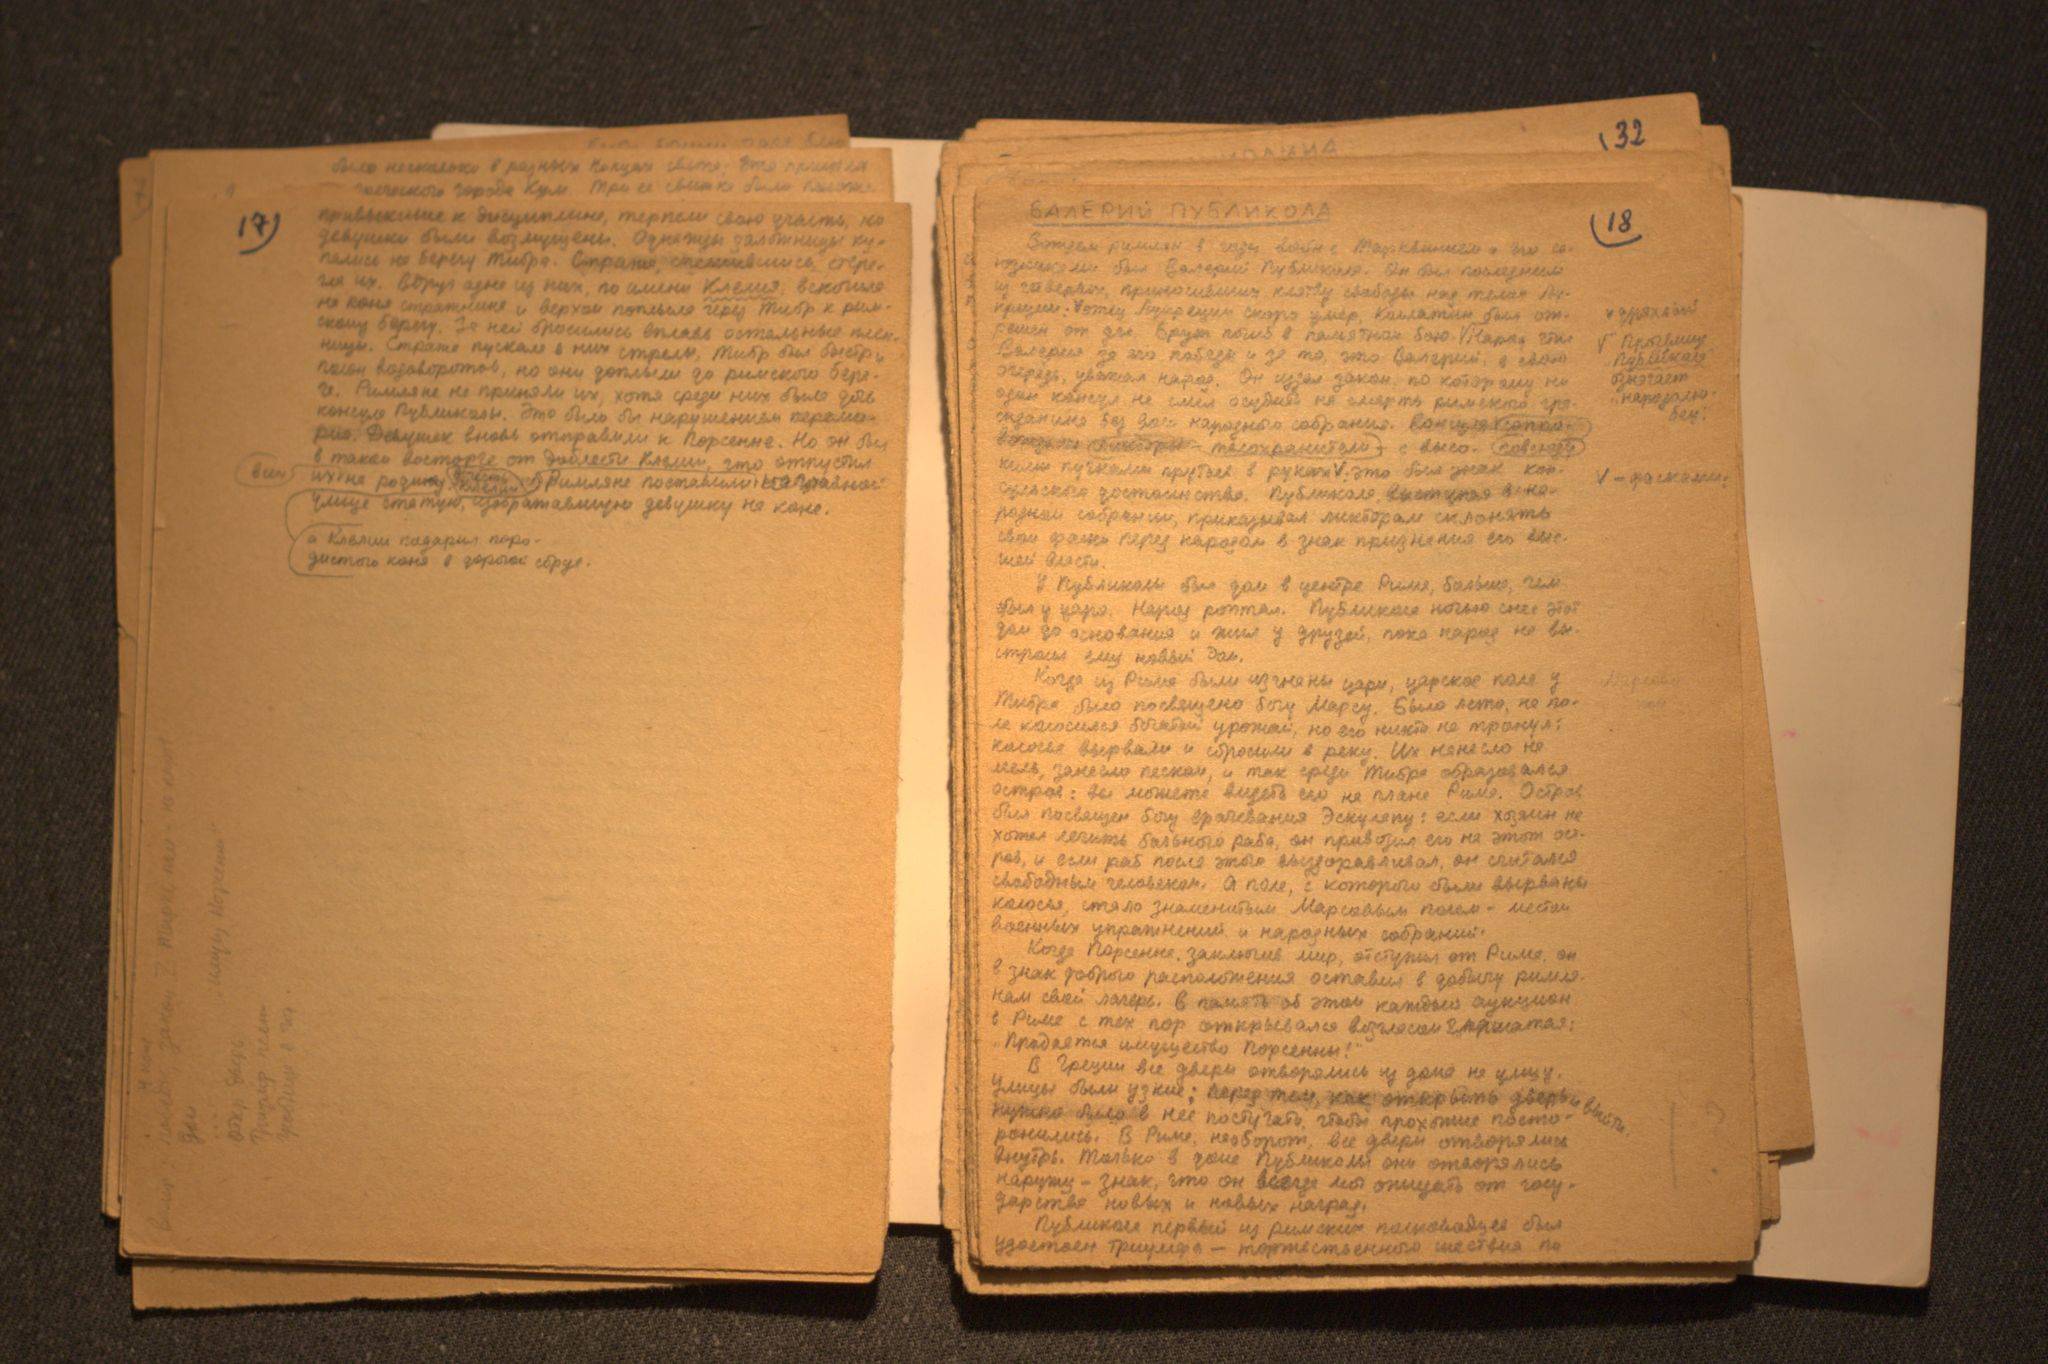 было несколько в разных концах света; эта пришла
греческого города Кум. Три её свитка были положе-
17)
привыкшие к дисциплине, терпели свою участь, но
девушки были возмущены. Однажды заложницы ку-
пались на берегу Тибра. Стража, спешившись, стере-
гла их. Вдруг одна из них, по имени Клелия, вскочила
на коня стражника и верхом поплыла через Тибр к рим-
скому берегу. За ней бросились вплавь остальные плен-
ницы. Стража пускала в них стрелы, Тибр был быстр и
полон водоворотов, но они доплыли до римского бере-
га. Римляне не приняли их, хотя среди них была дочь
консула Публиколы. Это было бы нарушением переми-
рия. Девушек вновь отправили к Порсенне. Но он был
в таком восторге от доблести Клелии, что отпустил
всех
их на родину. Римляне поставили на главной
улице статую, изображавшую девушку на коне.
а Клелии подарил поро-
дистого коня в дорогой сбруе.
32
18
ВАЛЕРИЙ ПУБЛИКОЛА
Вождем римлян в годы войн с Тарквинием и его со-
юзниками был Валерий Публикола. Он был последним
из четверых, приносивших клятву свободы над телом Лу-
креции: отец Лукреции скоро умер, Коллатин был от-
решен от дел, Брут погиб в памятном бою. V Народ чтил
Валерия за его победы и за то, что Валерий, в свою
очередь, уважал народ. Он издал закон, по которому ни
один консул не смел осудить на смерть римского гра-
жданина без воли народного собрания. Консула сопро-
вождали ликторы - телохранители с высо- повсюду
кими пучками прутьев в руках V: это был знак кон-
сульского достоинства. Публикола, выступая в на-
родном собрании, приказывал ликторам склонять
свои фаски перед народом в знак признания его выс-
шей власти.
v дряхлый
V Прозвище
"Публикола"
означает
"народолю-
бец".
V - фасками:
У Публиколы был дом в центре Рима, больше, чем
был у царя. Народ роптал. Публикола ночью снес этот
дом до основания и жил у друзей, пока народ не вы-
строил ему новый дом.
Когда из Рима были изгнаны цари, царское поле у
Тибра было посвящено богу Марсу. Было лето, на по-
ле колосился богатый урожай, но его никто не тронул:
колосья вырвали и сбросили в реку. Их нанесло на
мель, занесло песком, и так среди Тибра образовался
остров: вы можете видеть его на плане Рима. Остров
был посвящен богу врачевания Эскулапу: если хозяин не
хотел лечить больного раба, он привозил его на этот ост-
ров, и если раб после этого выздоравливал, он считался
свободным человеком. А поле, с которого были вырваны
колосья, стало знаменитым Марсовым полем - местом
военных упражнений и народных собраний.
Когда Порсенна, заключив мир, отступил от Рима, он
в знак доброго расположения оставил в добычу римля-
нам свой лагерь. В память об этом каждый аукцион
в Риме с тех пор открывался возгласом глашатая:
"Продается имущество Порсенны!"
В Греции все двери отворялись из дома на улицу.
Улицы были узкие; перед тем, как открыть дверь и выйти,
нужно было в нее постучать, чтобы прохожие посто-
ронились. В Риме, наоборот, все двери отворялись
внутрь. Только в доме Публиколы они отворялись
наружу - знак, что он всегда мог ожидать от госу-
дарства новых и новых наград.
Публикола первый из римских полководцев был
удостоен триумфа - торжественного шествия по